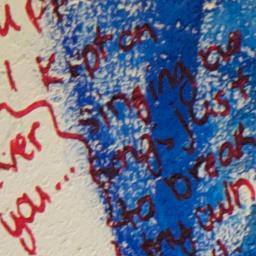 I kept on
singing our
song, just
to break
my own
ver
you...